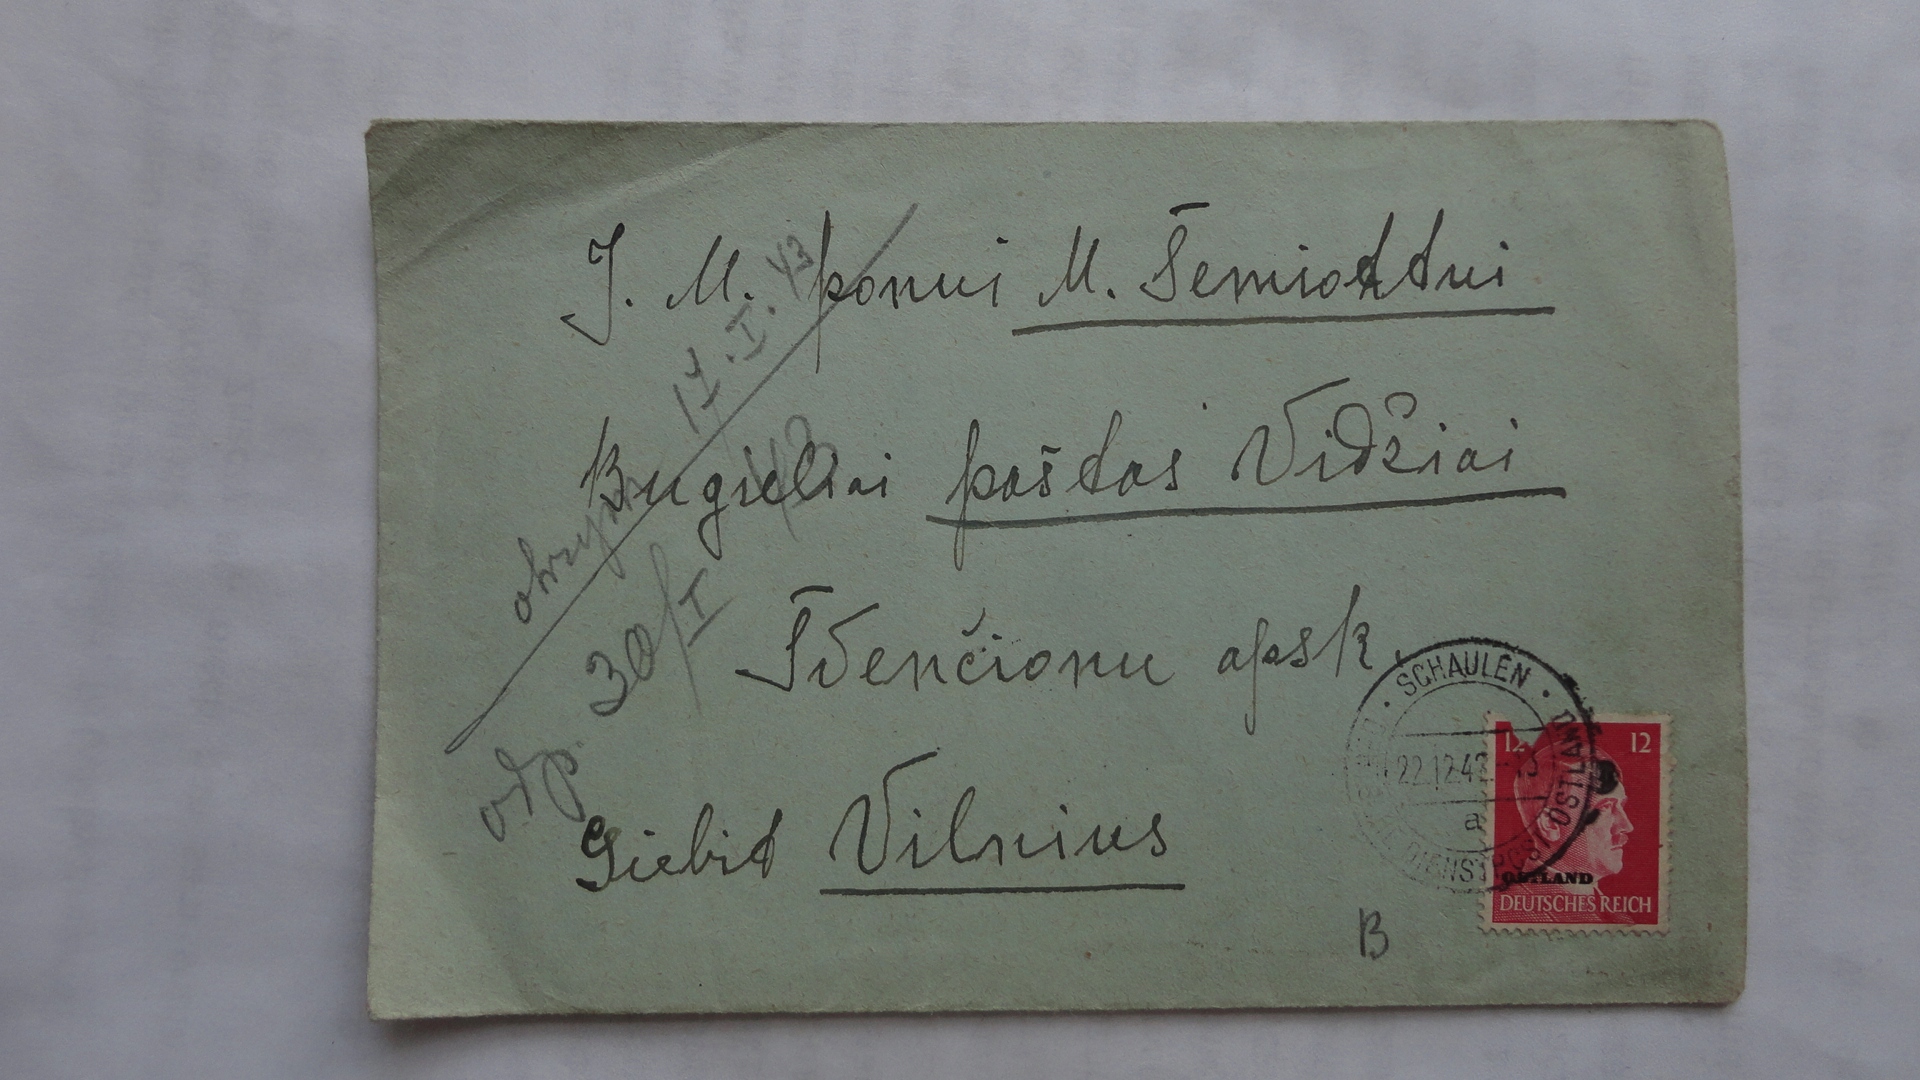 J. M. ponui M. Šemiottui
Bugieliai paštas Vidžiai
Švenčionu apsk.
Giebit Vilnius
17.I.43
odp. 30/I 43
B
SCHAULEN
22.12.42-13
a
DIENSTPOST OSTLAND
12 12
OSTLAND
DEUTSCHES REICH